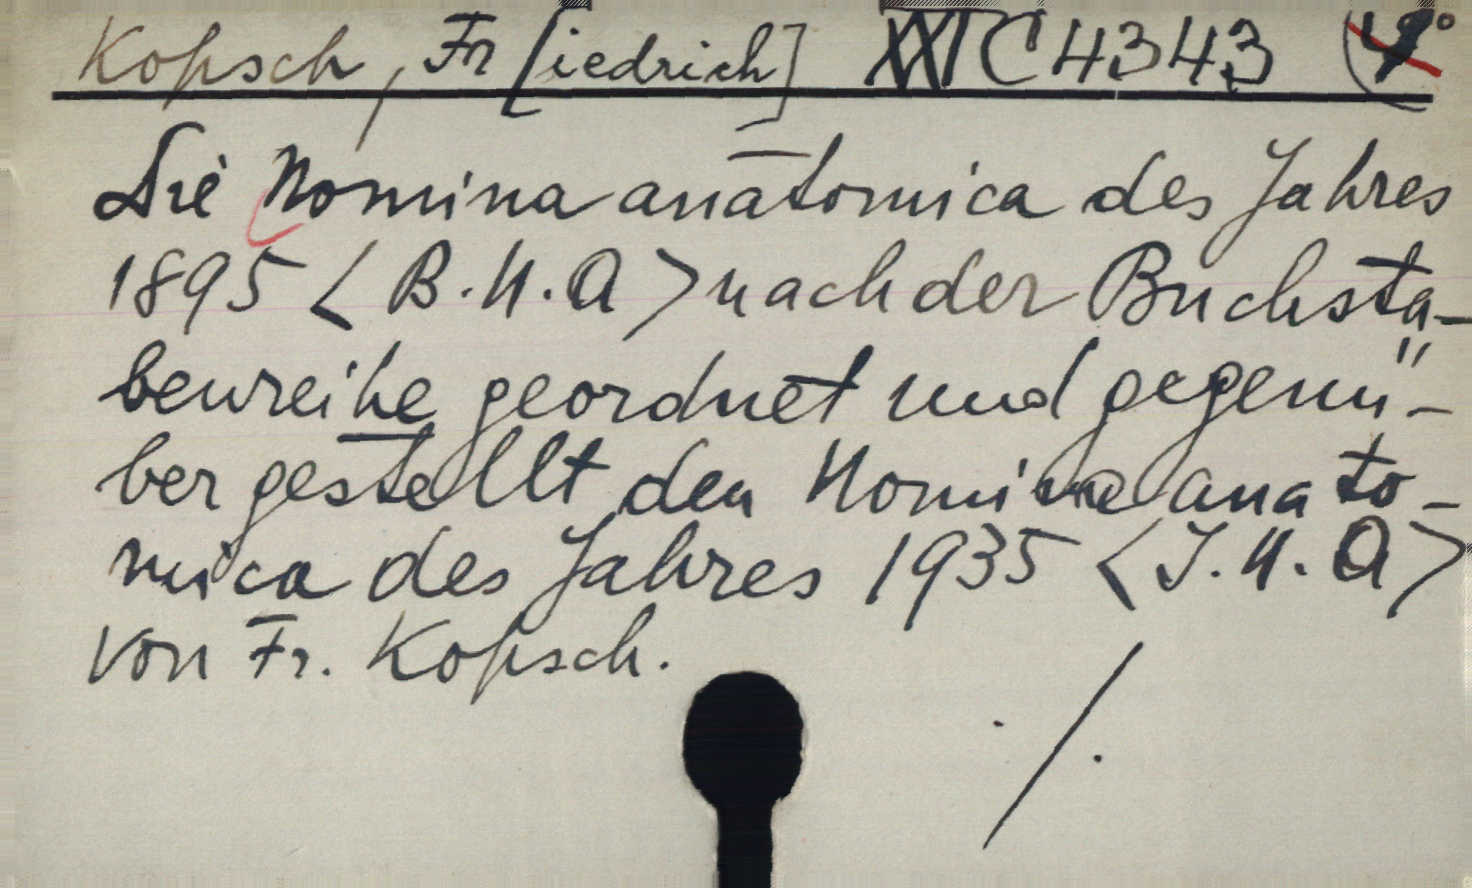 Kopsch, Fr[iedrich] XXI C 4343 4°
Die Nomina anatomica des Jahres
1895 <B.N.A> nach der Buchsta-
benreihe geordnet und gegenü-
bergestellt den Nomina anato-
mica des Jahres 1935 <J.N.A>
von Fr. Kopsch.
./.